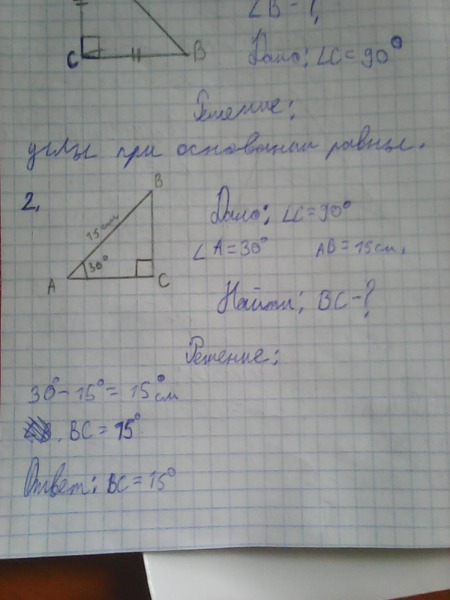 ∠B - ?
C
B
Дано: ∠C = 90°
Решение:
углы при основании равны.
2.
B
15 см
30°
A
C
Дано: ∠C = 90°
∠A = 30° AB = 15 см.
Найти: BC - ?
Решение:
30° - 15° = 15° см
. BC = 15°
Ответ: BC = 15°